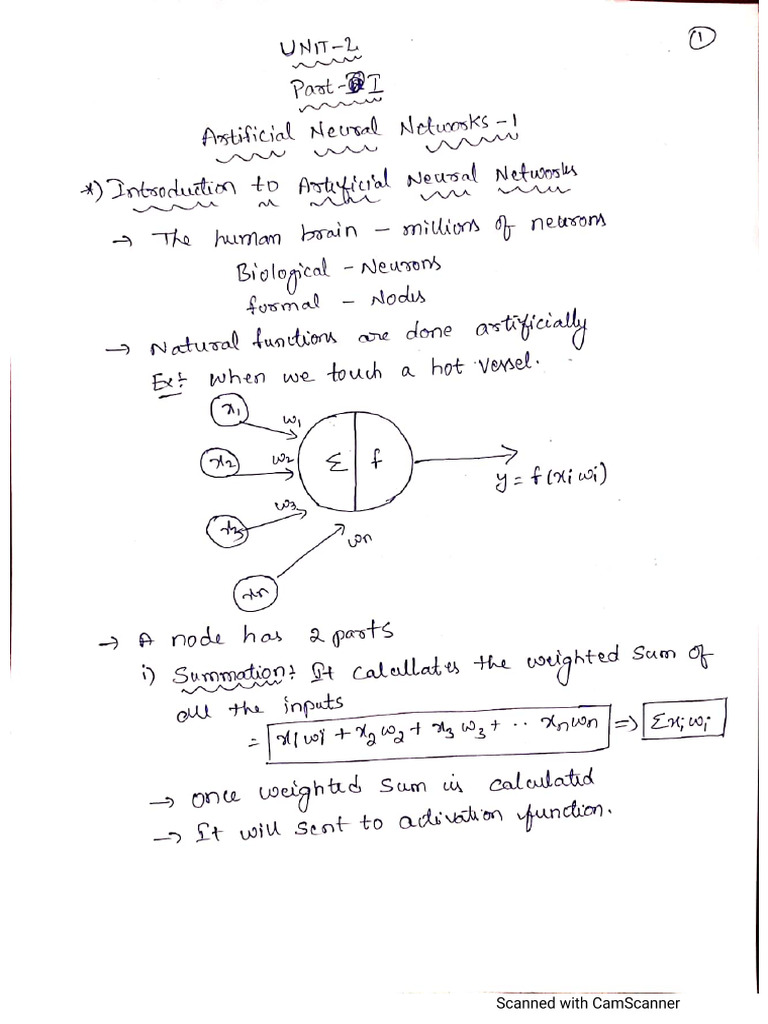 1
UNIT-2
Part-I
Artificial Neural Networks-1
*) Introduction to Artificial Neural Networks
→ The human brain - millions of neurons
Biological - Neurons
formal - Nodes
→ Natural functions are done artificially
Ex: when we touch a hot vessel.
x1 w1
x2 w2 Σ f
y = f(xi wi)
x3 w3
wn
xn
→ A node has 2 parts
i) Summation: It calcullates the weighted sum of
all the inputs
= x1 wi + x2 w2 + x3 w3 + .. xn wn => Σxi wi
→ once weighted sum is calculated
→ It will sent to activation function.
Scanned with CamScanner